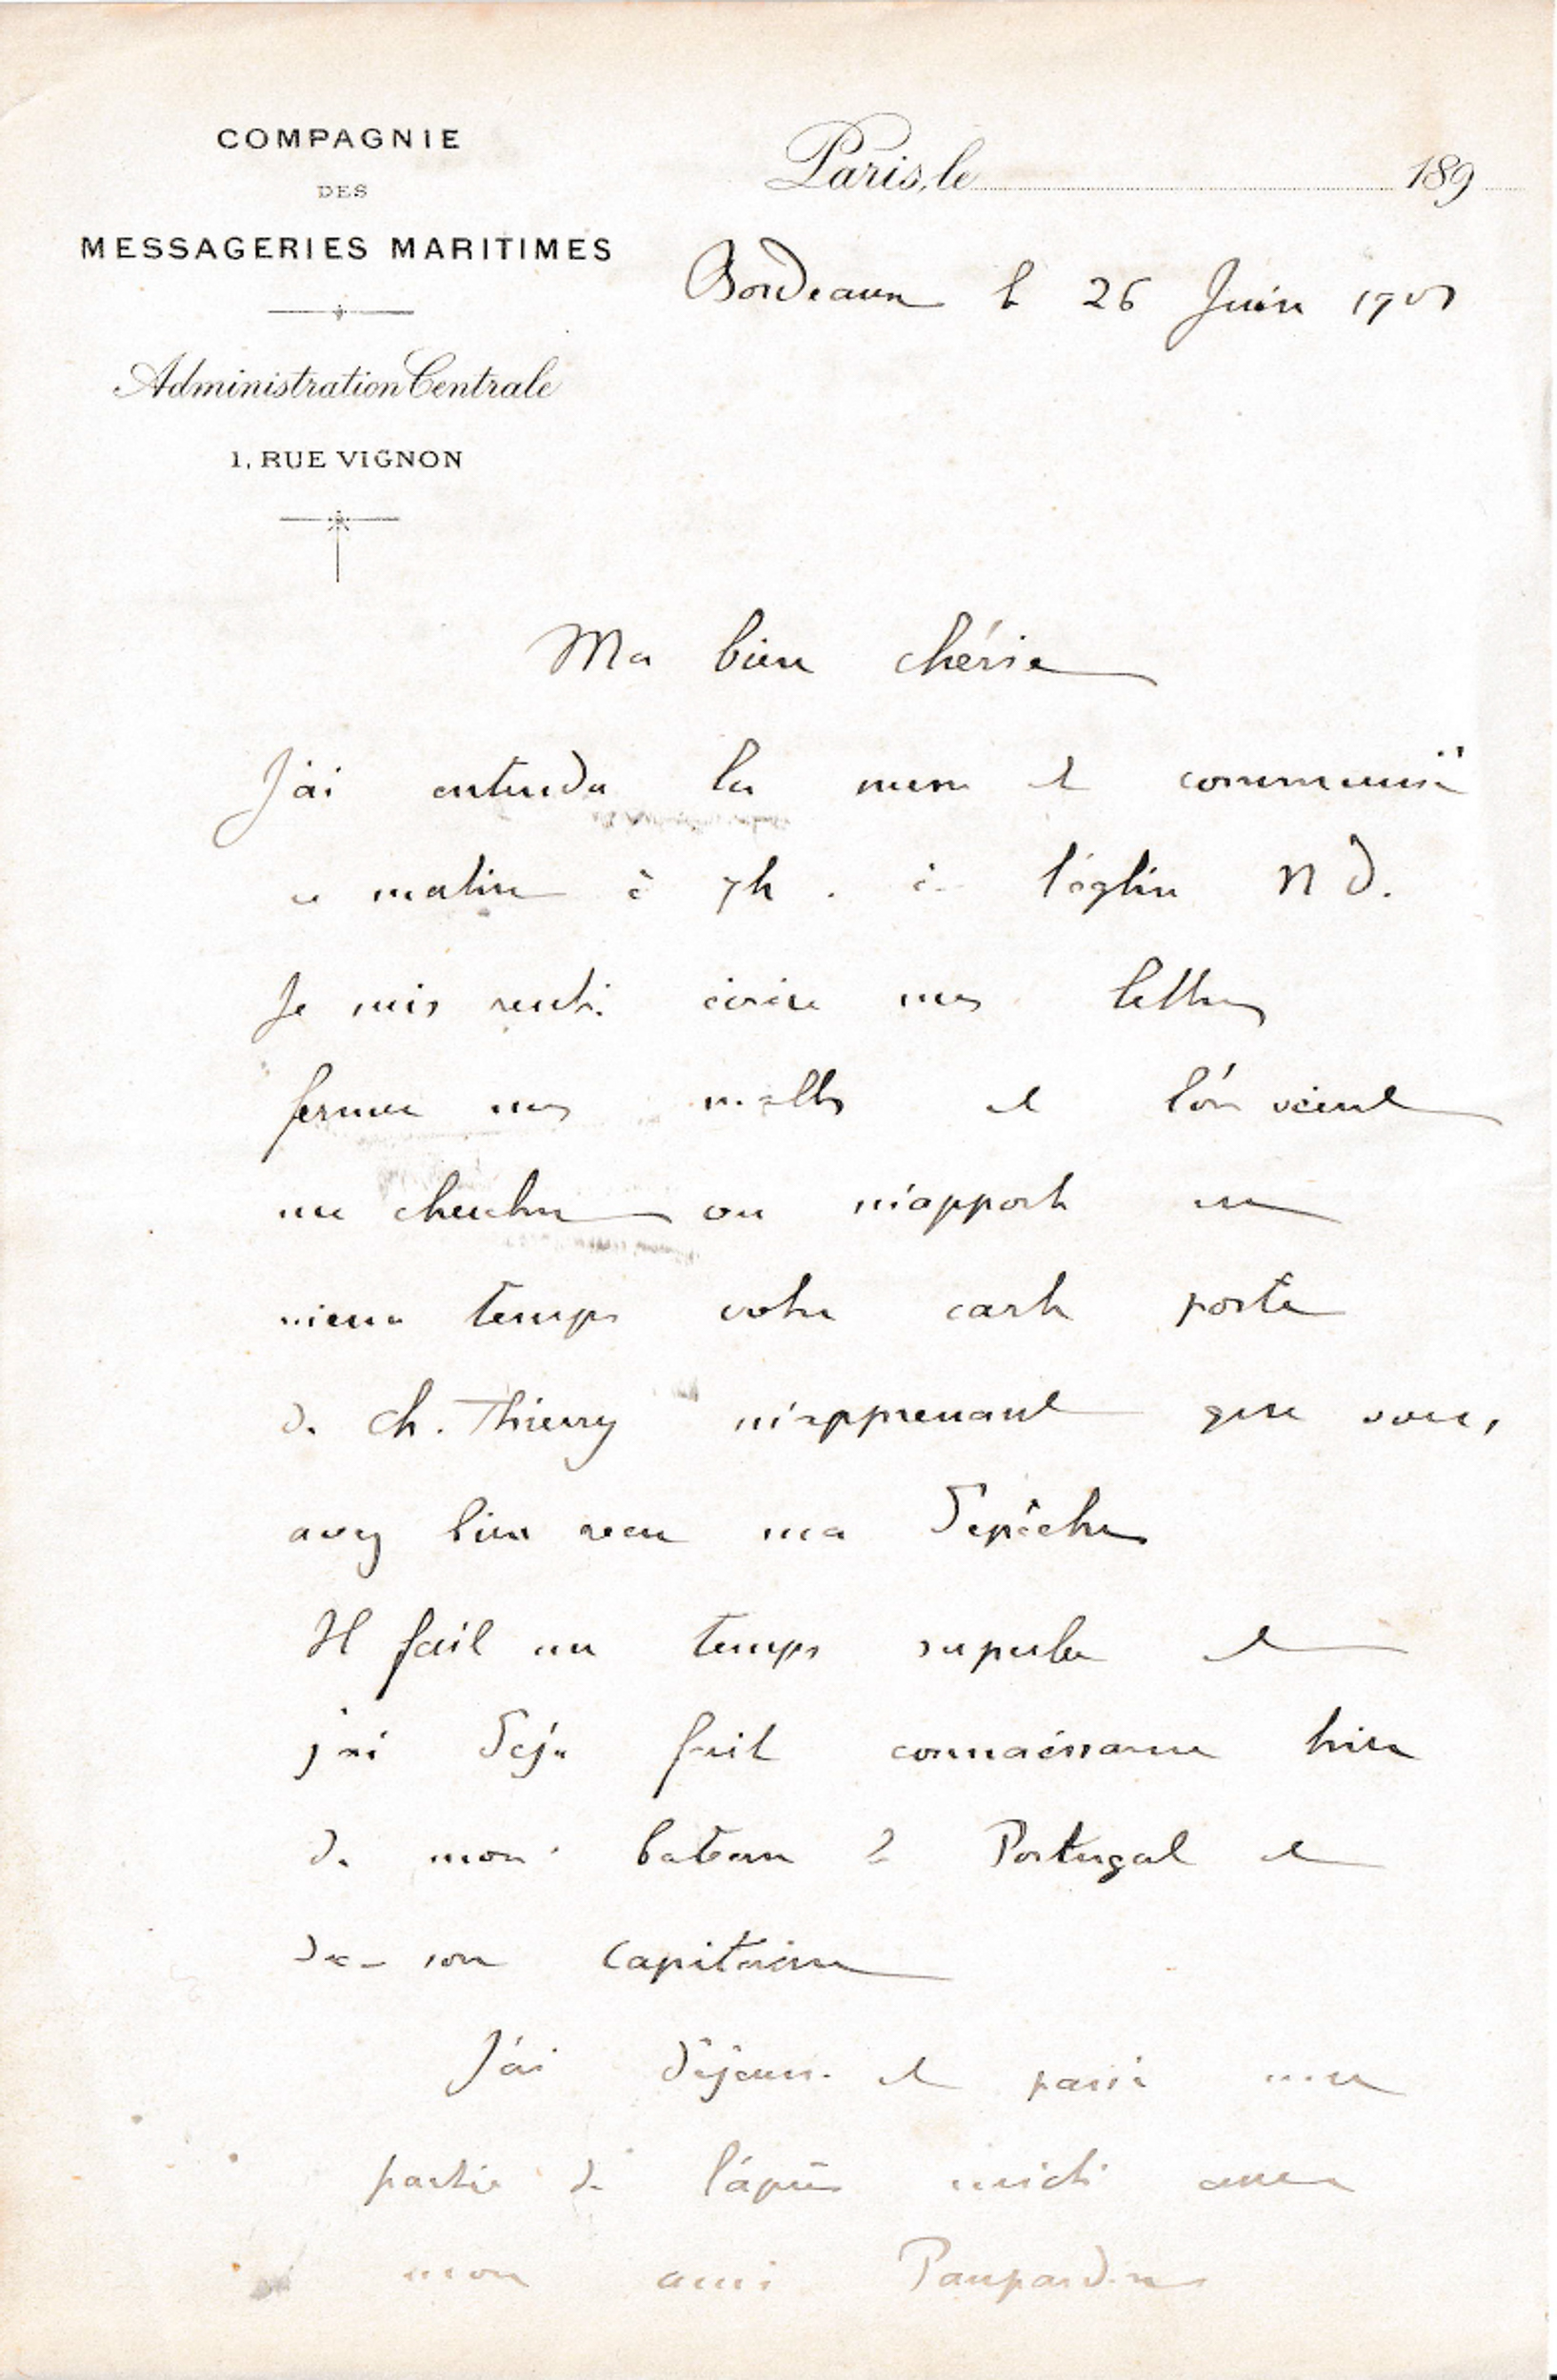 COMPAGNIE
DES
MESSAGERIES MARITIMES
Administration Centrale
1, RUE VIGNON
Paris, le 189
Bordeaux le 26 Juin
Ma bien chérie
J'ai entendu la messe et communié
ce matin à 7h. à l'église N D.
Je suis rentré écrire mes lettres
fermer mes malles et l'on vient
me chercher on m'apporte en
même temps votre carte poste
de Ch. Thierry m'apprenant que vous,
avez bien recu ma dépêche
Il fait un temps superbe et
j'ai déjà fait connaissance hier
de mon bateau le Portugal et
de son capitaine
J'ai déjeuné et passé une
partie de l'après midi avec
mon ami